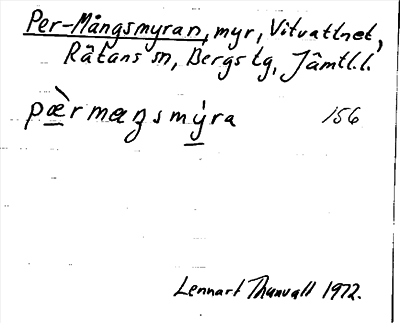 Per-Mångsmyran, myr, Vitvattnet,
Rätans sn, Bergs tg, Jämtl.l.
pæ̀rmaŋsmýra 156
Lennart Thunvall 1972.